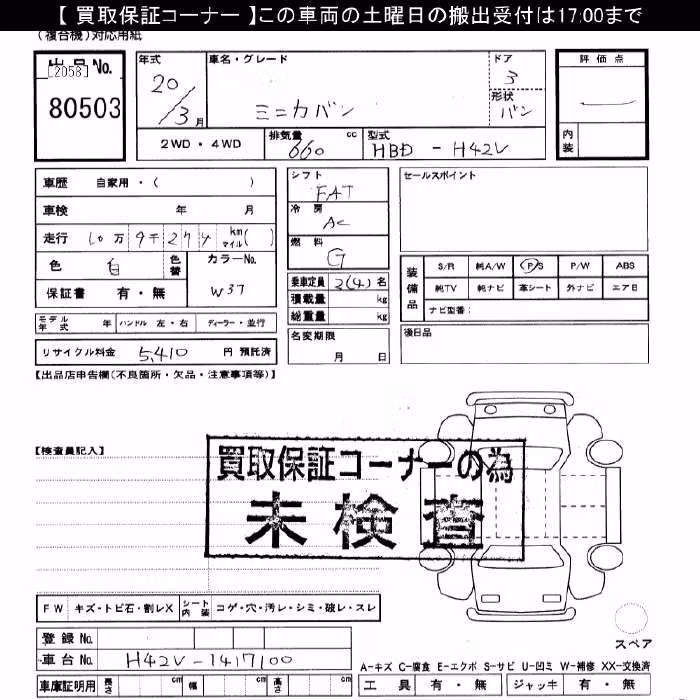 【 買取保証コーナー 】この車両の土曜日の搬出受付は17:00まで
(複合機)対応用紙
出品No.
[2058]
80503
年式
20/3月
車名・グレード
ミニカバン
ドア
3
形状
バン
2WD・4WD
排気量
660
cc
型式
HBD - H42V
評価点
内装
車歴 自家用・( )
車検 年 月
走行 10万 9千 274 km マイル( )
色 白 色替
カラーNo.
W37
保証書 有・無
モデル年式 年 ハンドル 左・右 ディーラー・並行
リサイクル料金 5,410 円 預託済
シフト
FAT
冷房
AC
燃料
G
乗車定員 2(4) 名
積載量 kg
総重量 kg
名変期限
月 日
セールスポイント
装備品
S/R 純A/W P/S P/W ABS
純TV 純ナビ 革シート 外ナビ エアB
ナビ型番:
後日品
【出品店申告欄(不良箇所・欠品・注意事項等)】
【検査員記入】
買取保証コーナーの為
未検査
FW キズ・トビ石・割レX シート内装 コゲ・穴・汚レ・シミ・破レ・スレ
登録No.
車台No. H42V-1417100
車庫証明用 長さ cm 幅 cm 高さ cm
スペア
A-キズ C-腐食 E-エクボ S-サビ U-凹ミ W-補修 XX-交換済
工具 有・無 ジャッキ 有・無